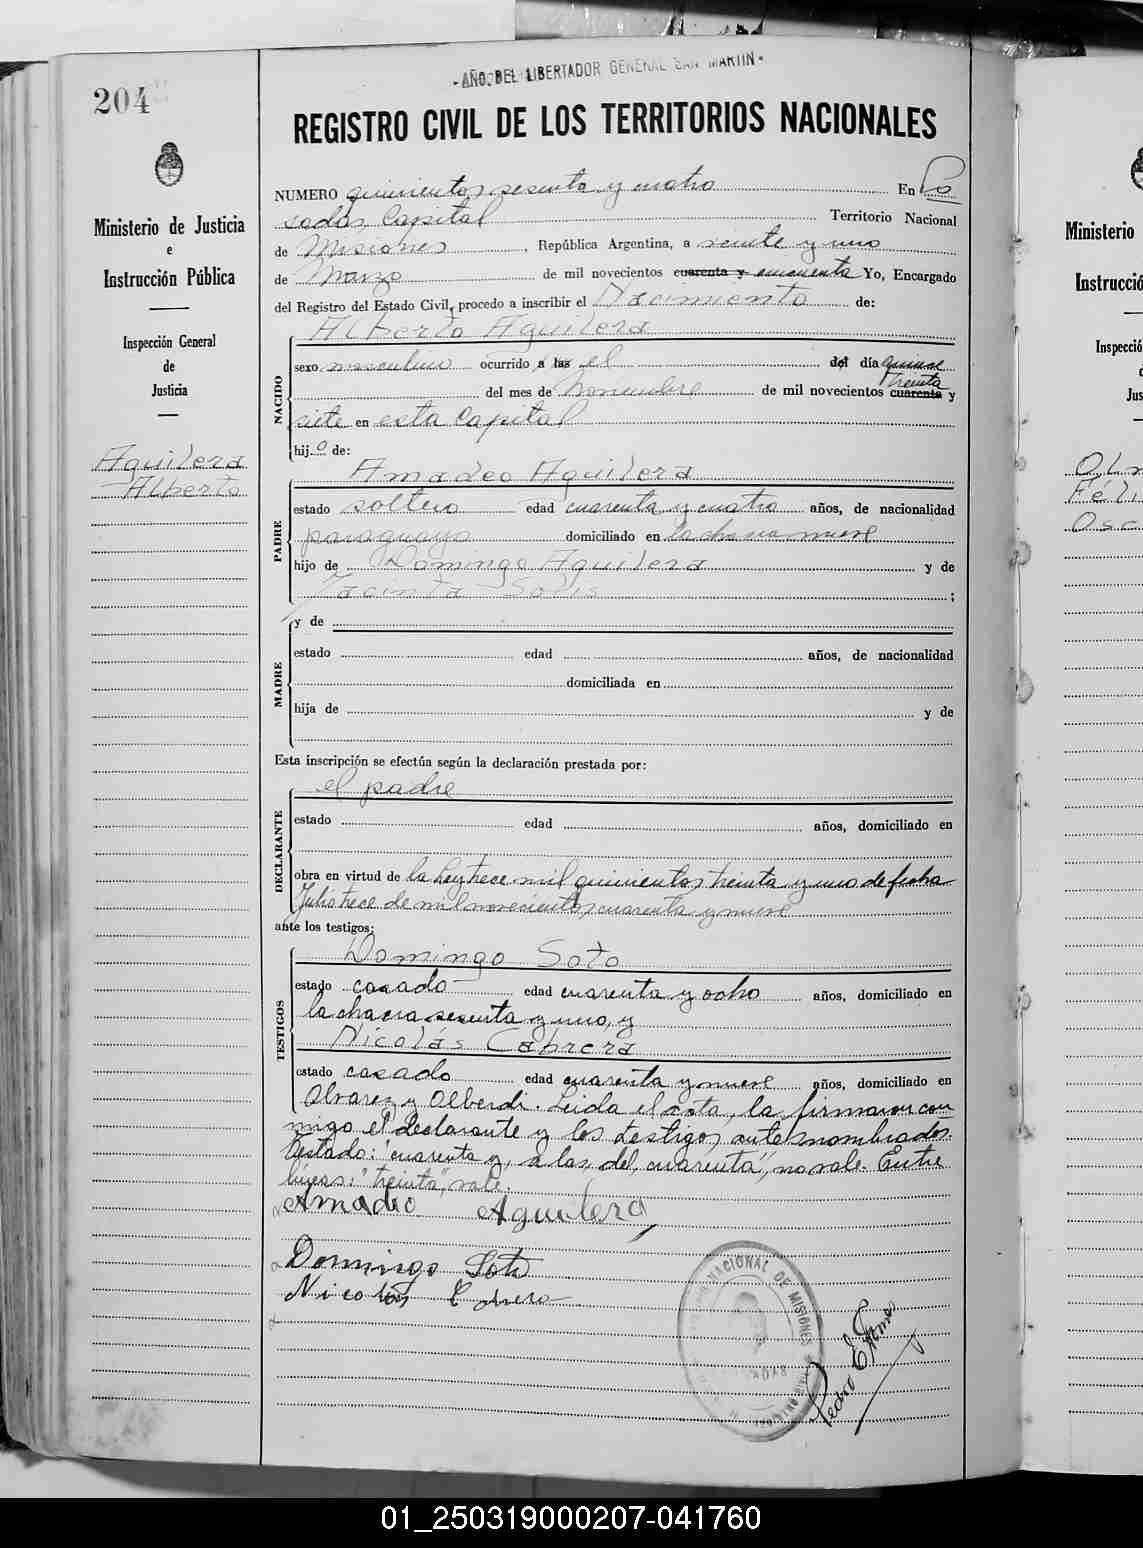 -AÑO DEL LIBERTADOR GENERAL SAN MARTIN-
204
REGISTRO CIVIL DE LOS TERRITORIOS NACIONALES
Ministerio de Justicia
e
Instrucción Pública
Inspección General
de
Justicia
Aguilera
Alberto
NUMERO quinientos sesenta y cuatro En Po
sadas Capital Territorio Nacional
de Misiones, República Argentina, a veinte y uno
de Marzo de mil novecientos cuarenta y cincuenta Yo, Encargado
del Registro del Estado Civil, procedo a inscribir el Nacimiento de:
Alberto Aguilera
NACIDO
sexo masculino ocurrido a las el del día quince
treinta
del mes de Noviembre de mil novecientos cuarenta y
siete en esta Capital
hijo de:
Amadeo Aguilera
PADRE
estado soltero edad cuarenta y cuatro años, de nacionalidad
paraguaya domiciliado en la chacra nueve
hijo de Domingo Aguilera y de
Jacinta Solis ;
y de
MADRE
estado edad años, de nacionalidad
domiciliada en
hija de y de
Esta inscripción se efectúa según la declaración prestada por:
el padre
DECLARANTE
estado edad años, domiciliado en
obra en virtud de la Ley trece mil quinientos treinta y uno de fecha
Julio trece de mil novecientos cuarenta y nueve
ante los testigos:
Domingo Soto
TESTIGOS
estado casado edad cuarenta y ocho años, domiciliado en
la chacra sesenta y uno, y
Nicolás Cabrera
estado casado edad cuarenta y nueve años, domiciliado en
Alvarez y Alberdi. Leida el acta, la firmaron con
migo el declarante y los testigos antes nombrados.
Testado: "cuarenta y, a las, del, cuarenta", no vale. Entre
líneas: "treinta", vale.
Amadeo Aguilera
Domingo Soto
Nicolás Cabrera
NACIONAL DE MISIONES
Pedro E.
Ministerio
Instrucció
Inspecció
Jus
Féli
Osc
01_250319000207-041760